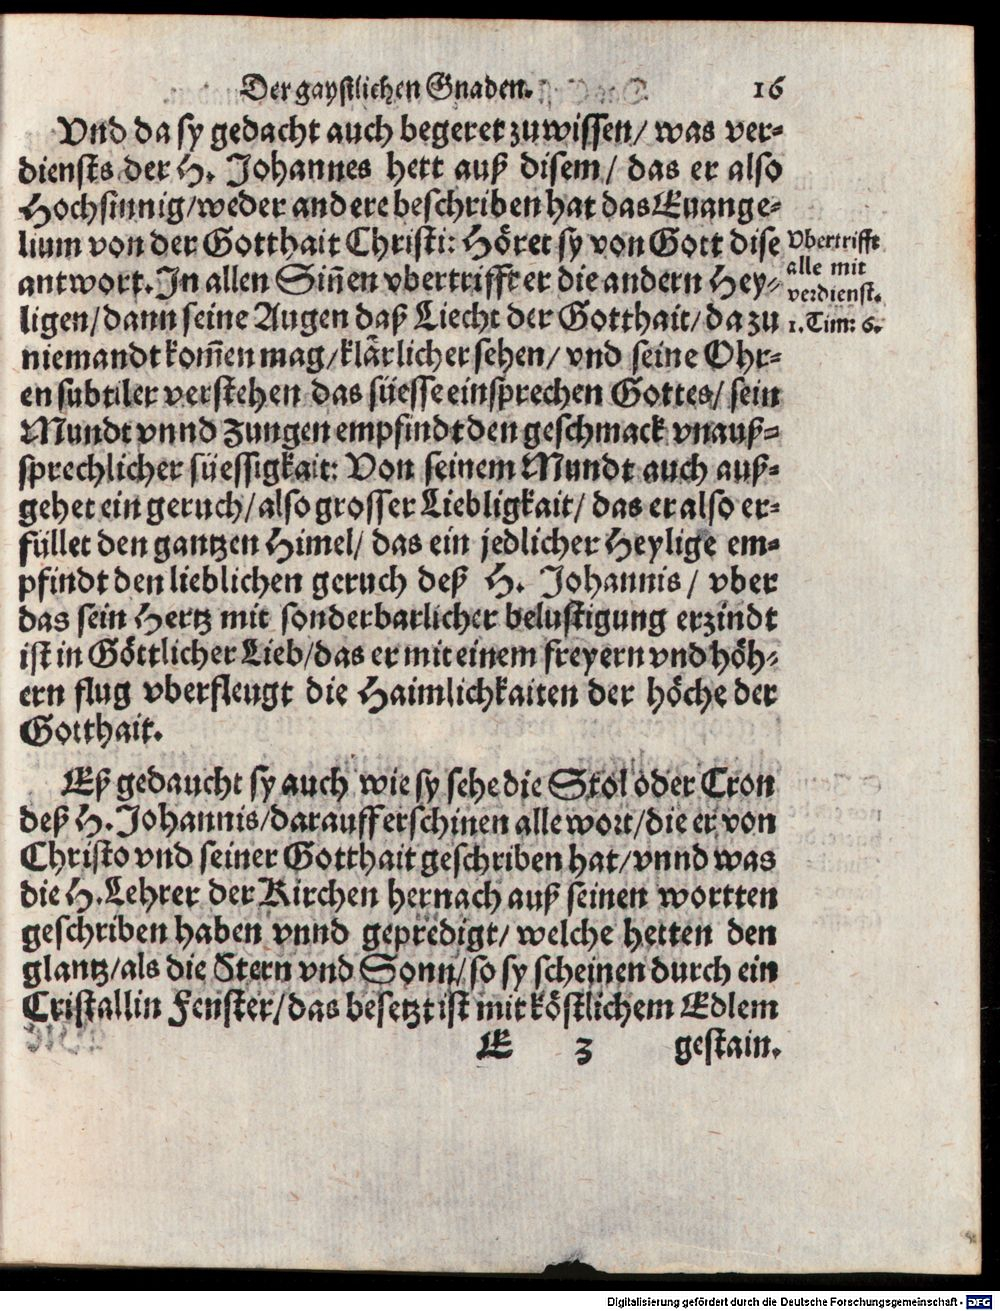 Der gaystlichen Gnaden. 16
Vnd da sy gedacht auch begeret zuwissen/ was ver-
diensts der H. Johannes hett auß disem/ das er also
Hochsinnig/weder andere beschriben hat das Euange-
lium von der Gotthait Christi: Höret sy von Gott dise
antwort. In allen Siñen vbertrifft er die andern Hey-
ligen/dann seine Augen daß Liecht der Gotthait/ da zu
niemandt kom̃en mag/klärlicher sehen/ vnd seine Ohr-
en subtiler verstehen das süesse einsprechen Gottes/ sein
Mundt vnnd Zungen empfindt den geschmack vnauß-
sprechlicher süessigkait: Von seinem Mundt auch auß-
gehet ein geruch/ also grosser Liebligkait/ das er also er-
füllet den gantzen Himel/ das ein jedlicher Heylige em-
pfindt den lieblichen geruch deß H. Johannis/ vber
das sein Hertz mit sonderbarlicher belustigung erzindt
ist in Göttlicher Lieb/das er mit einem freyern vnd höh-
ern flug vberfleugt die Haimlichkaiten der höche der
Gotthait.
Vbertrifft
alle mit
verdienst.
1. Tim: 6.
Eß gedaucht sy auch wie sy sehe die Stol oder Cron
deß H. Johannis/darauff erschinen alle wort/die er von
Christo vnd seiner Gotthait geschriben hat/vnnd was
die H. Lehrer der Kirchen hernach auß seinen wortten
geschriben haben vnnd geprëdigt/ welche hetten den
glantz/als die Stern vnd Sonn/ so sy scheinen durch ein
Cristallin Fenster/das besetzt ist mit köstlichem Edlem
E 3 gestain.
Digitalisierung gefördert durch die Deutsche Forschungsgemeinschaft - DFG